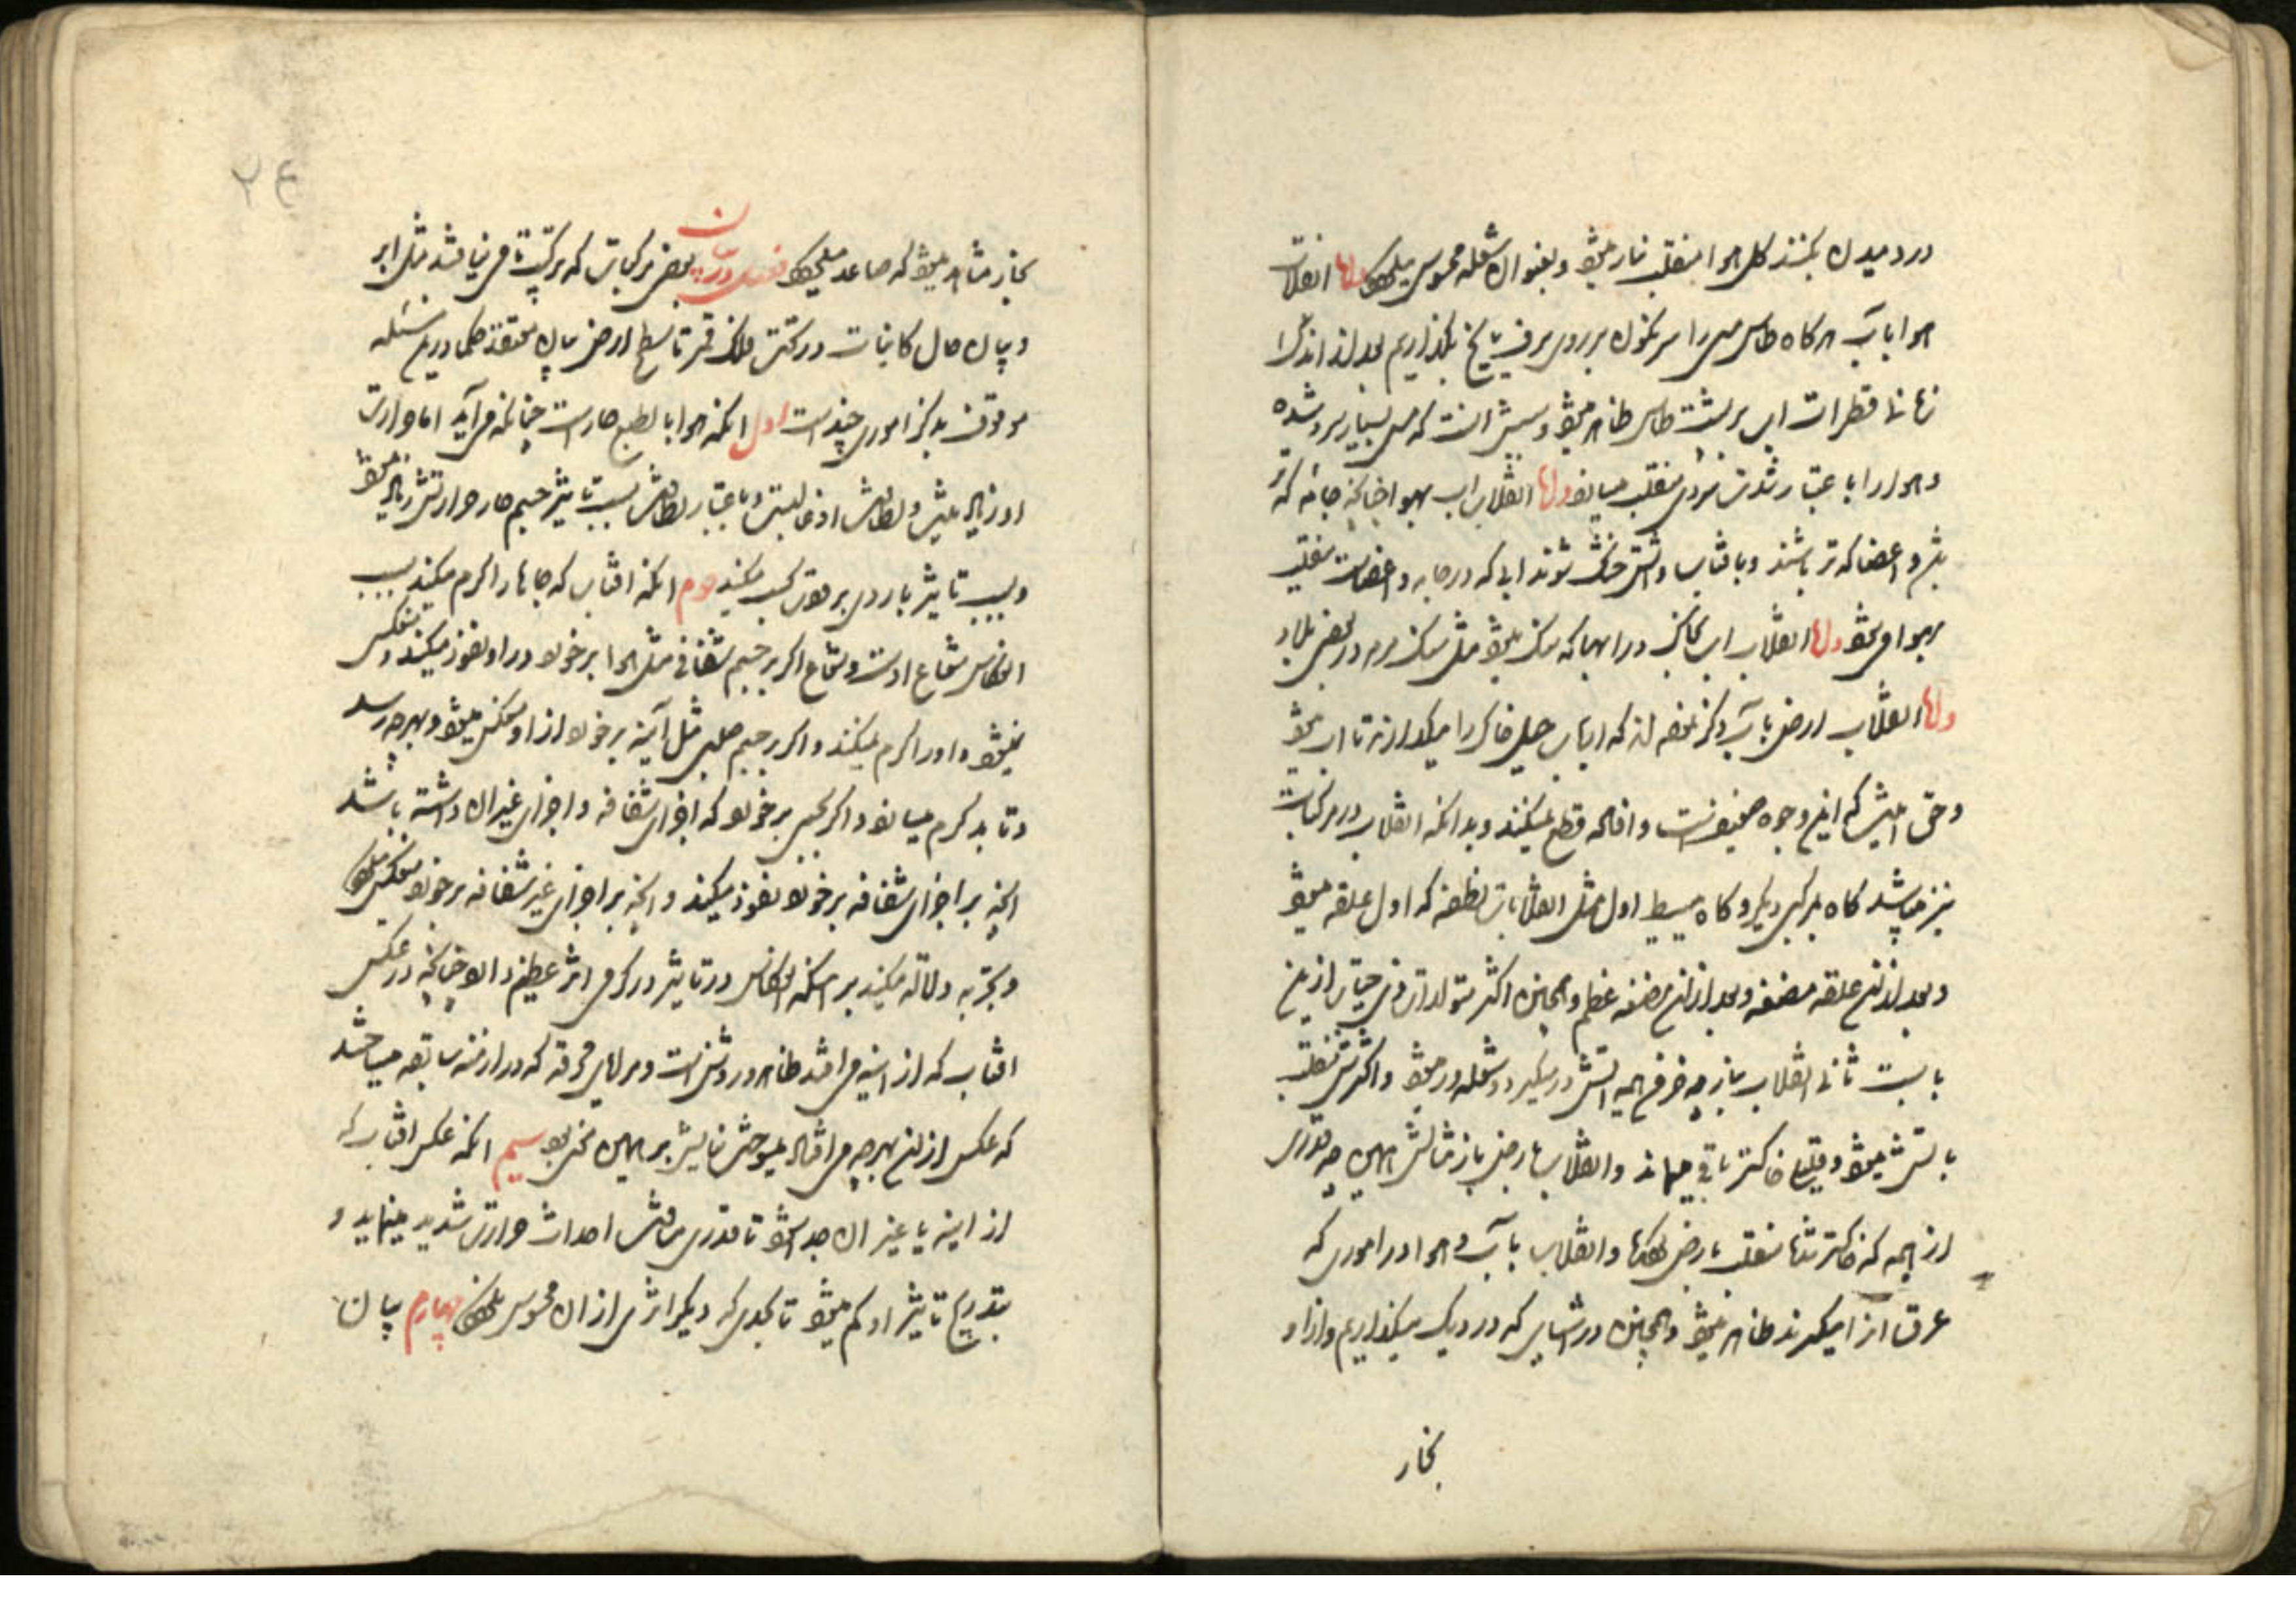 در دمیدن بکنند کل هوا منقلب بنار میشود و بعنوان شعله محسوس میگردد واما انقلاب
هوا بآب هر گاه طاس مس را سرنگون بر روی برف یا یخ بگذاریم بعد از اندک
زمانی قطرات آب بر پشت طاس ظاهر میشود و سببش آنست که مس بسیار سرد شده
و هوا را باعتبار شدت سردی منقلب میسازد واما انقلاب آب بهوا چنانچه جامه که تر
شد و اعضا که تر باشند و بآفتاب و آتش خشک شوند آبی که در جامه و اعضاست منقلب
بهوا میشود واما انقلاب آب بخاک در آبها که سنگ میشود مثل سنگ مرمر در بعضی بلاد
واما انقلاب ارض بآب ذکر کرده‌اند که ارباب حیل خاک را میگدازند تا آب میشود
و حق اینست که این وجوه ضعیفست و افاده قطع نمیکنند و بدانکه انقلاب در مرکبات
نیز میباشد گاه بمرکبی دیگر و گاه ببسیط اول مثل انقلابات نطفه که اول علقه میشود
و بعد از آن علقه مضغه و بعد از آن مضغه عظم و همچنین اکثر متولدات ذی حیات ازین
بابست ثانی انقلاب نیز چه مرغ همه آتش در میگیرد و شعله‌ور میشود و اکثرش منقلب
بآتش میشود و قلیلی خاکستر باقی میماند و انقلاب بارض باز مثالش همین چه قدری
از همه که خاکستر شد منقلب بارض و انقلاب بآب و هوا در اموری که
عرق از آن میگیرند ظاهر میشود و همچنین در آشهایی که در دیگ میگذاریم و از او
بخار
۲۴
بخار مشاهد میشود که صاعد میگردد فصل در بیان بعضی مرکباتی که ترکیب تام نیافتند مثل ابر
و بیان حال کاینات در تحت فلک قمر تا سطح ارض بیان معتقد حکما درین مسئله
موقوف بذکر اموری چند است اول آنکه هوا بالطبع حار است چنانکه می‌آید اما حرارت
او زیاد نیست و لطافتش در غایتست و باعتبار لطافتش بسبب تاثیر جسم حار حرارتش زیاد میشود
و بسبب تاثیر باردی برودت کسب میکند دوم آنکه آفتاب که جاها را گرم میکند بسبب
انعکاس شعاع اوست و شعاع اگر بر جسم شفافی مثل هوا بر خورد در او نفوذ میکند و منعکس
نمیشود و او را گرم نمیکند و اگر بر جسم صلبی مثل آینه بر خورد از او منعکس میشود و بهر چه رسد
و تابد گرم میسازد و اگر بجسمی بر خورد که اجزای شفافه و اجزای غیر آن داشته باشد
آنچه بر اجزای شفافه بر خورد نفوذ میکند و آنچه بر اجزای غیر شفافه بر خورد منعکس میگردد
و تجربه دلالت میکند بر اینکه انعکاس در تاثیر در گرمی اثر عظیم دارد چنانچه در عکس
آفتاب که از آینه می‌افتد ظاهر و روشن است و مرایای محرقه که در ازمنه سابقه میساختند
که عکس از آن بهر چه می‌افتاد میسوخت بنایش بر همین نحو بود سیم آنکه عکس آفتاب که
از آینه یا غیر آن جدا میشود تا قدری مسافت احداث حرارتی شدید مینماید و
بتدریج تاثیر او کم میشود تا بحدی که دیگر اثری از آن محسوس نمیگردد چهارم بیان